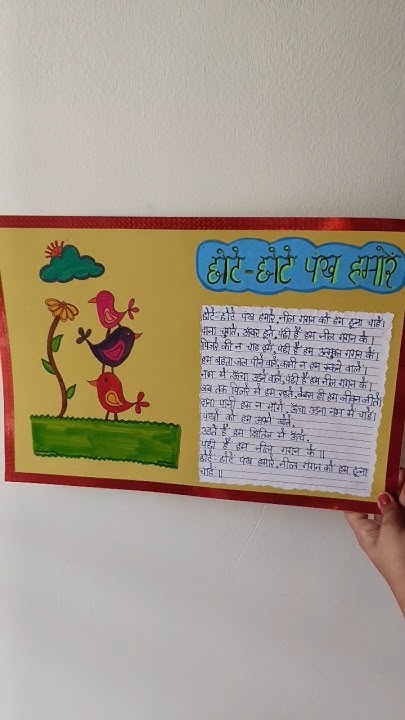 छोटे-छोटे पंख हमारे
छोटे-छोटे पंख हमारे, नील गगन को हम छूना चाहे।
दाना चुगते, अंबर छूते, पंछी हैं हम नील गगन के।
पिंजरे की न चाह हमें, पंछी हैं हम उन्मुक्त गगन के।
हम बहता जल पीने वाले, कभी न हम रुकने वाले।
नभ में ऊँचा उड़ने वाले, पंछी हैं हम नील गगन के।
जब तक पिंजरे में हम रहते, बेबस ही हम जीवन जीते।
दाना पानी हम न माँगे, ऊँचा उड़ना नभ में चाहे।
पंखों को हम अपने खोले,
उड़ते हैं हम क्षितिज में ऊँचे,
पंछी हैं हम नील गगन के॥
छोटे-छोटे पंख हमारे, नील गगन को हम छूना
चाहे॥